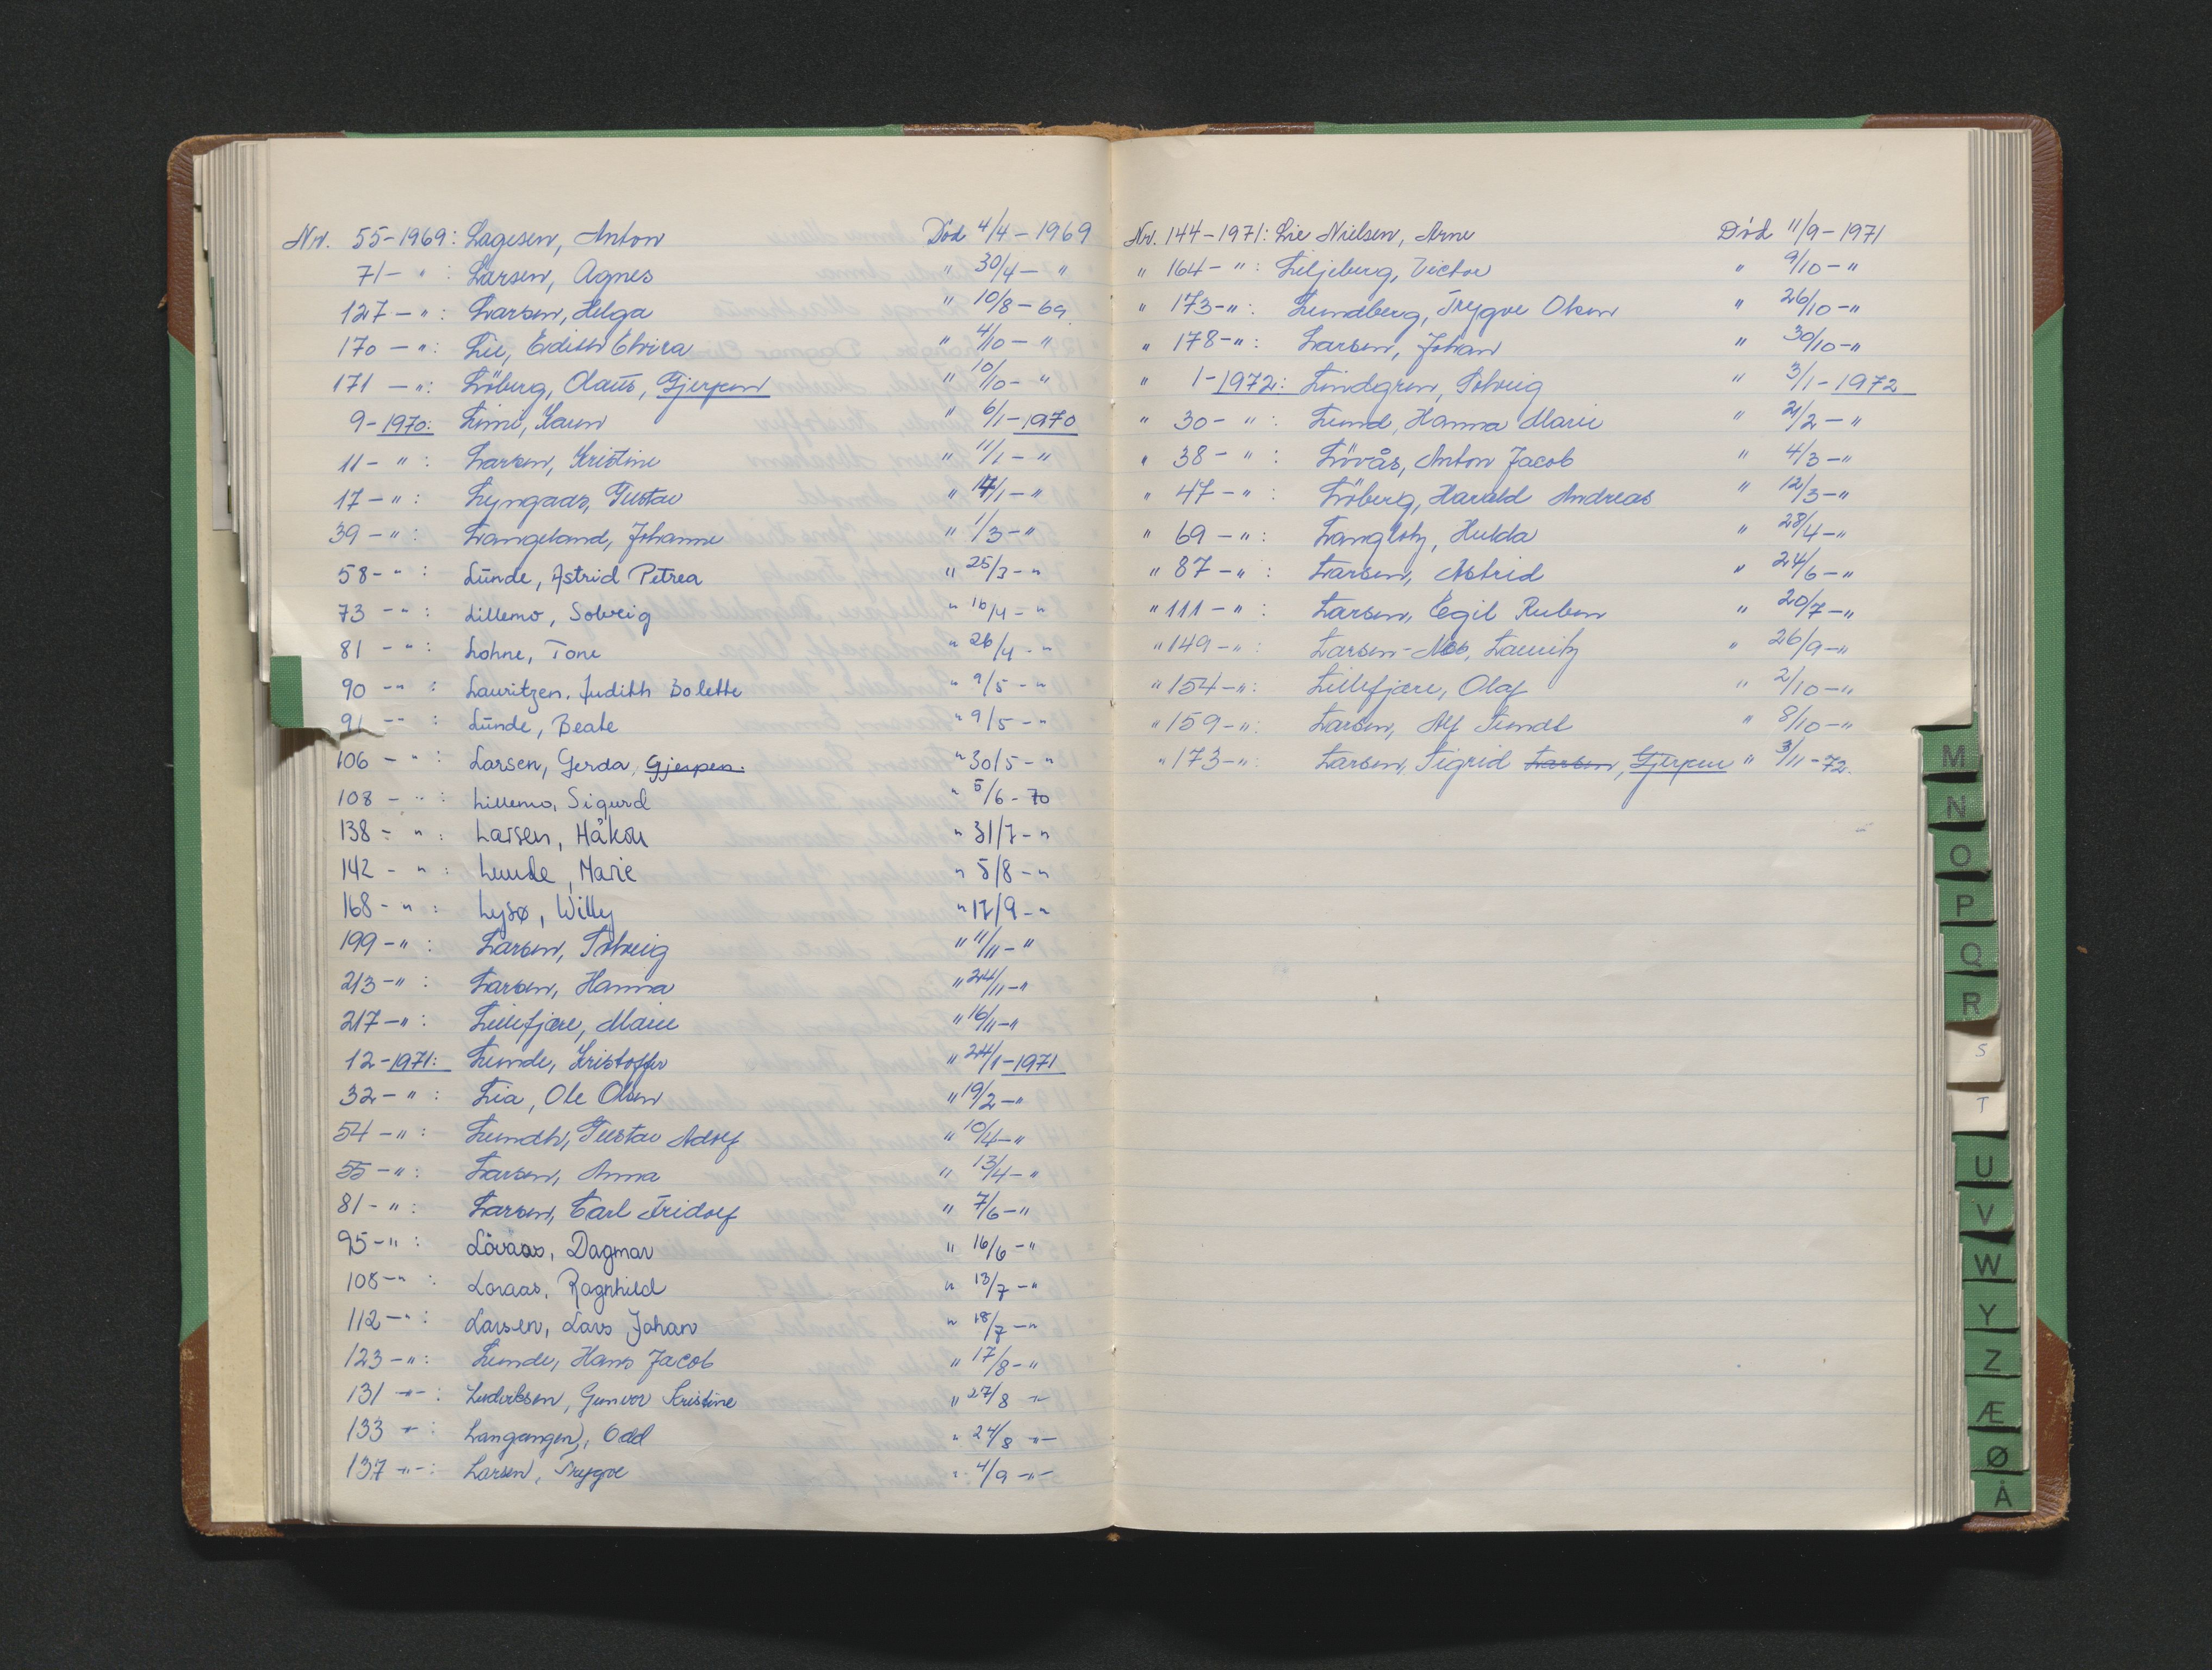 Nr. 55-1969: Lagesen, Anton Död 4/4-1969
71- " : Larsen, Agnes " 30/4- "
127- " : Larsen, Helga " 10/8-69
170- " : Lie, Edith Elvira " 4/10- "
171- " : Löberg, Olaus, Gjerpen " 10/10- "
9-1970: Limi, Karen " 6/1-1970
11- " : Larsen, Kristine " 11/1- "
17- " : Lyngaas, Gustav " 14/1- "
39- " : Langeland, Johanne " 1/3- "
58- " : Lunde, Astrid Petrea " 25/3- "
73- " : Lillemo, Solveig " 16/4- "
81- " : Lohne, Tone " 26/4- "
90- " : Lauritzen, Judith Bolette " 9/5- "
91- " : Lunde, Beate " 9/5- "
106- " : Larsen, Gerda, Gjerpen. " 30/5- "
108- " : Lillemo, Sigurd " 5/6-70
138- " : Larsen, Håkon " 31/7- "
142- " : Lunde, Marie " 5/8- "
168- " : Lysø, Willy " 17/9- "
199- " : Larsen, Solveig " 11/11- "
213- " : Larsen, Hanna " 24/11- "
217- " : Lillefjære, Marie " 16/11- "
12-1971: Lunde, Kristoffer " 24/1-1971
32- " : Lia, Ole Olsen " 19/2- "
54- " : Lundh, Gustav Adolf " 10/4- "
55- " : Larsen, Anna " 13/4- "
81- " : Larsen, Carl Fridolf " 7/6- "
95- " : Lövaas, Dagmar " 16/6- "
108- " : Loraas, Ragnhild " 13/7- "
112- " : Larsen, Lars Johan " 18/7- "
123- " : Lunde, Hans Jacob " 17/8- "
131 -"- : Ludviksen, Gunvor Kristine " 27/8 -"-
133 -"- : Langangen, Odd " 24/8 -"-
137 -"- : Larsen, Trygve " 4/9 -"-
Nr. 144-1971: Lie Nielsen, Arne Död 11/9-1971
" 164- " : Liljeberg, Victor " 9/10- "
" 173- " : Lundberg, Trygve Olsen " 26/10- "
" 178- " : Larsen, Johan " 30/10- "
" 1-1972: Lindgren, Solveig " 3/1-1972
" 30- " : Lund, Hanna Marie " 21/2- "
" 38- " : Lövås, Anton Jacob " 4/3- "
" 47- " : Löberg, Harald Andreas " 12/3- "
" 69- " : Langlotz, Hulda " 28/4- "
" 87- " : Larsen, Astrid " 24/6- "
" 111- " : Larsen, Egil Ruben " 20/7- "
" 149- " : Larsen-Nes, Lauritz " 26/9- "
" 154- " : Lillefjære, Olaf " 2/10- "
" 159- " : Larsen, Alf Sundt " 8/10- "
" 173- " : Larsen, Sigrid Larsen, Gjerpen " 3/11-72.
M
N
O
P
Q
R
S
T
U
V
W
Y
Z
Æ
Ø
Å